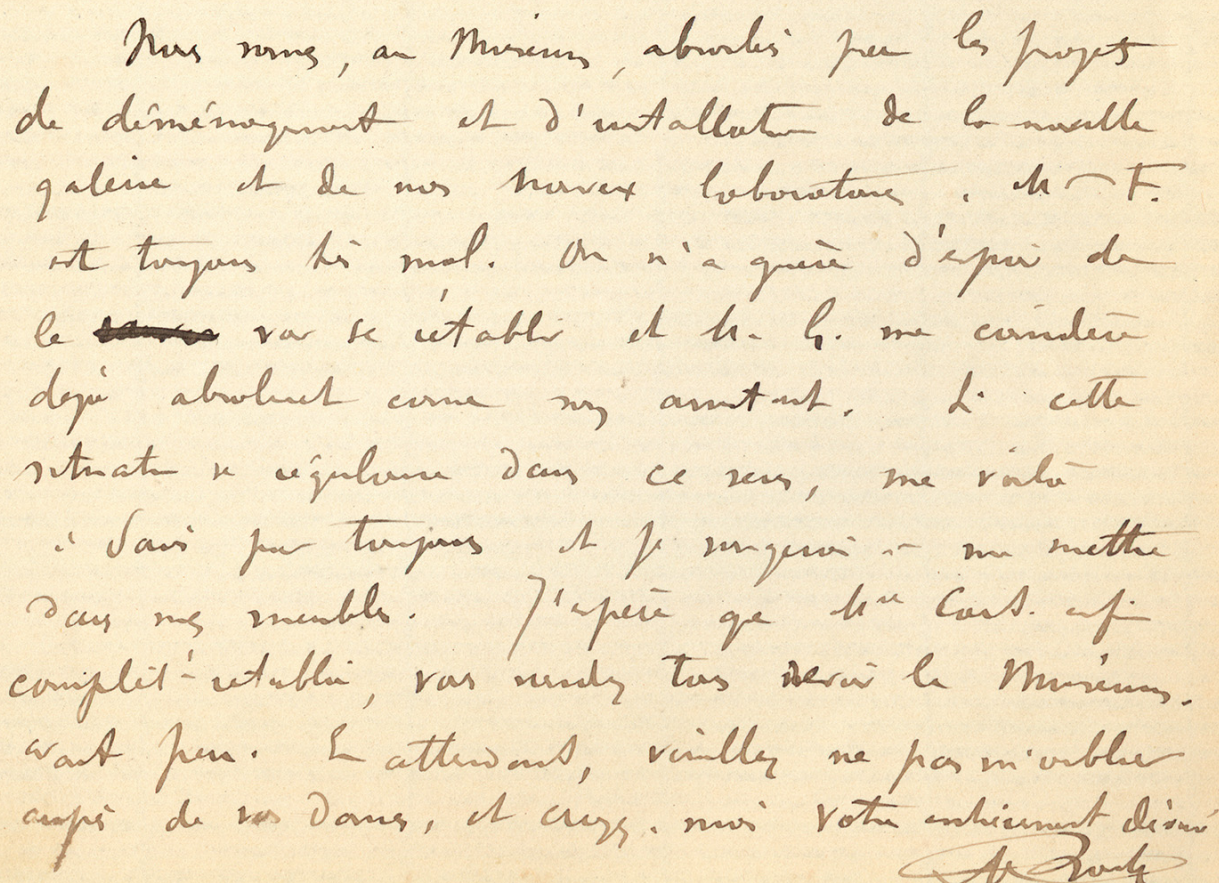 Nous sommes, au Muséum, absorbés par les projets
de déménagement et d'installation de la nouvelle
galerie et de nos nouveaux laboratoires. M F.
est toujours très mal. On n'a guère d'espoir de
le voir se rétablir et M. G. me considère
déjà absolument comme son assistant. Si cette
situation se régularise dans ce sens, me voilà
à Paris pour toujours et je songerai à me mettre
dans mes meubles. J'espère que Mme enfin
complèt-t rétablie, vous viendrez tous revoir le Muséum
avant peu. En attendant, veuillez ne pas m'oublier
auprès de vos Dames, et croyez-moi votre entièrement dévoué